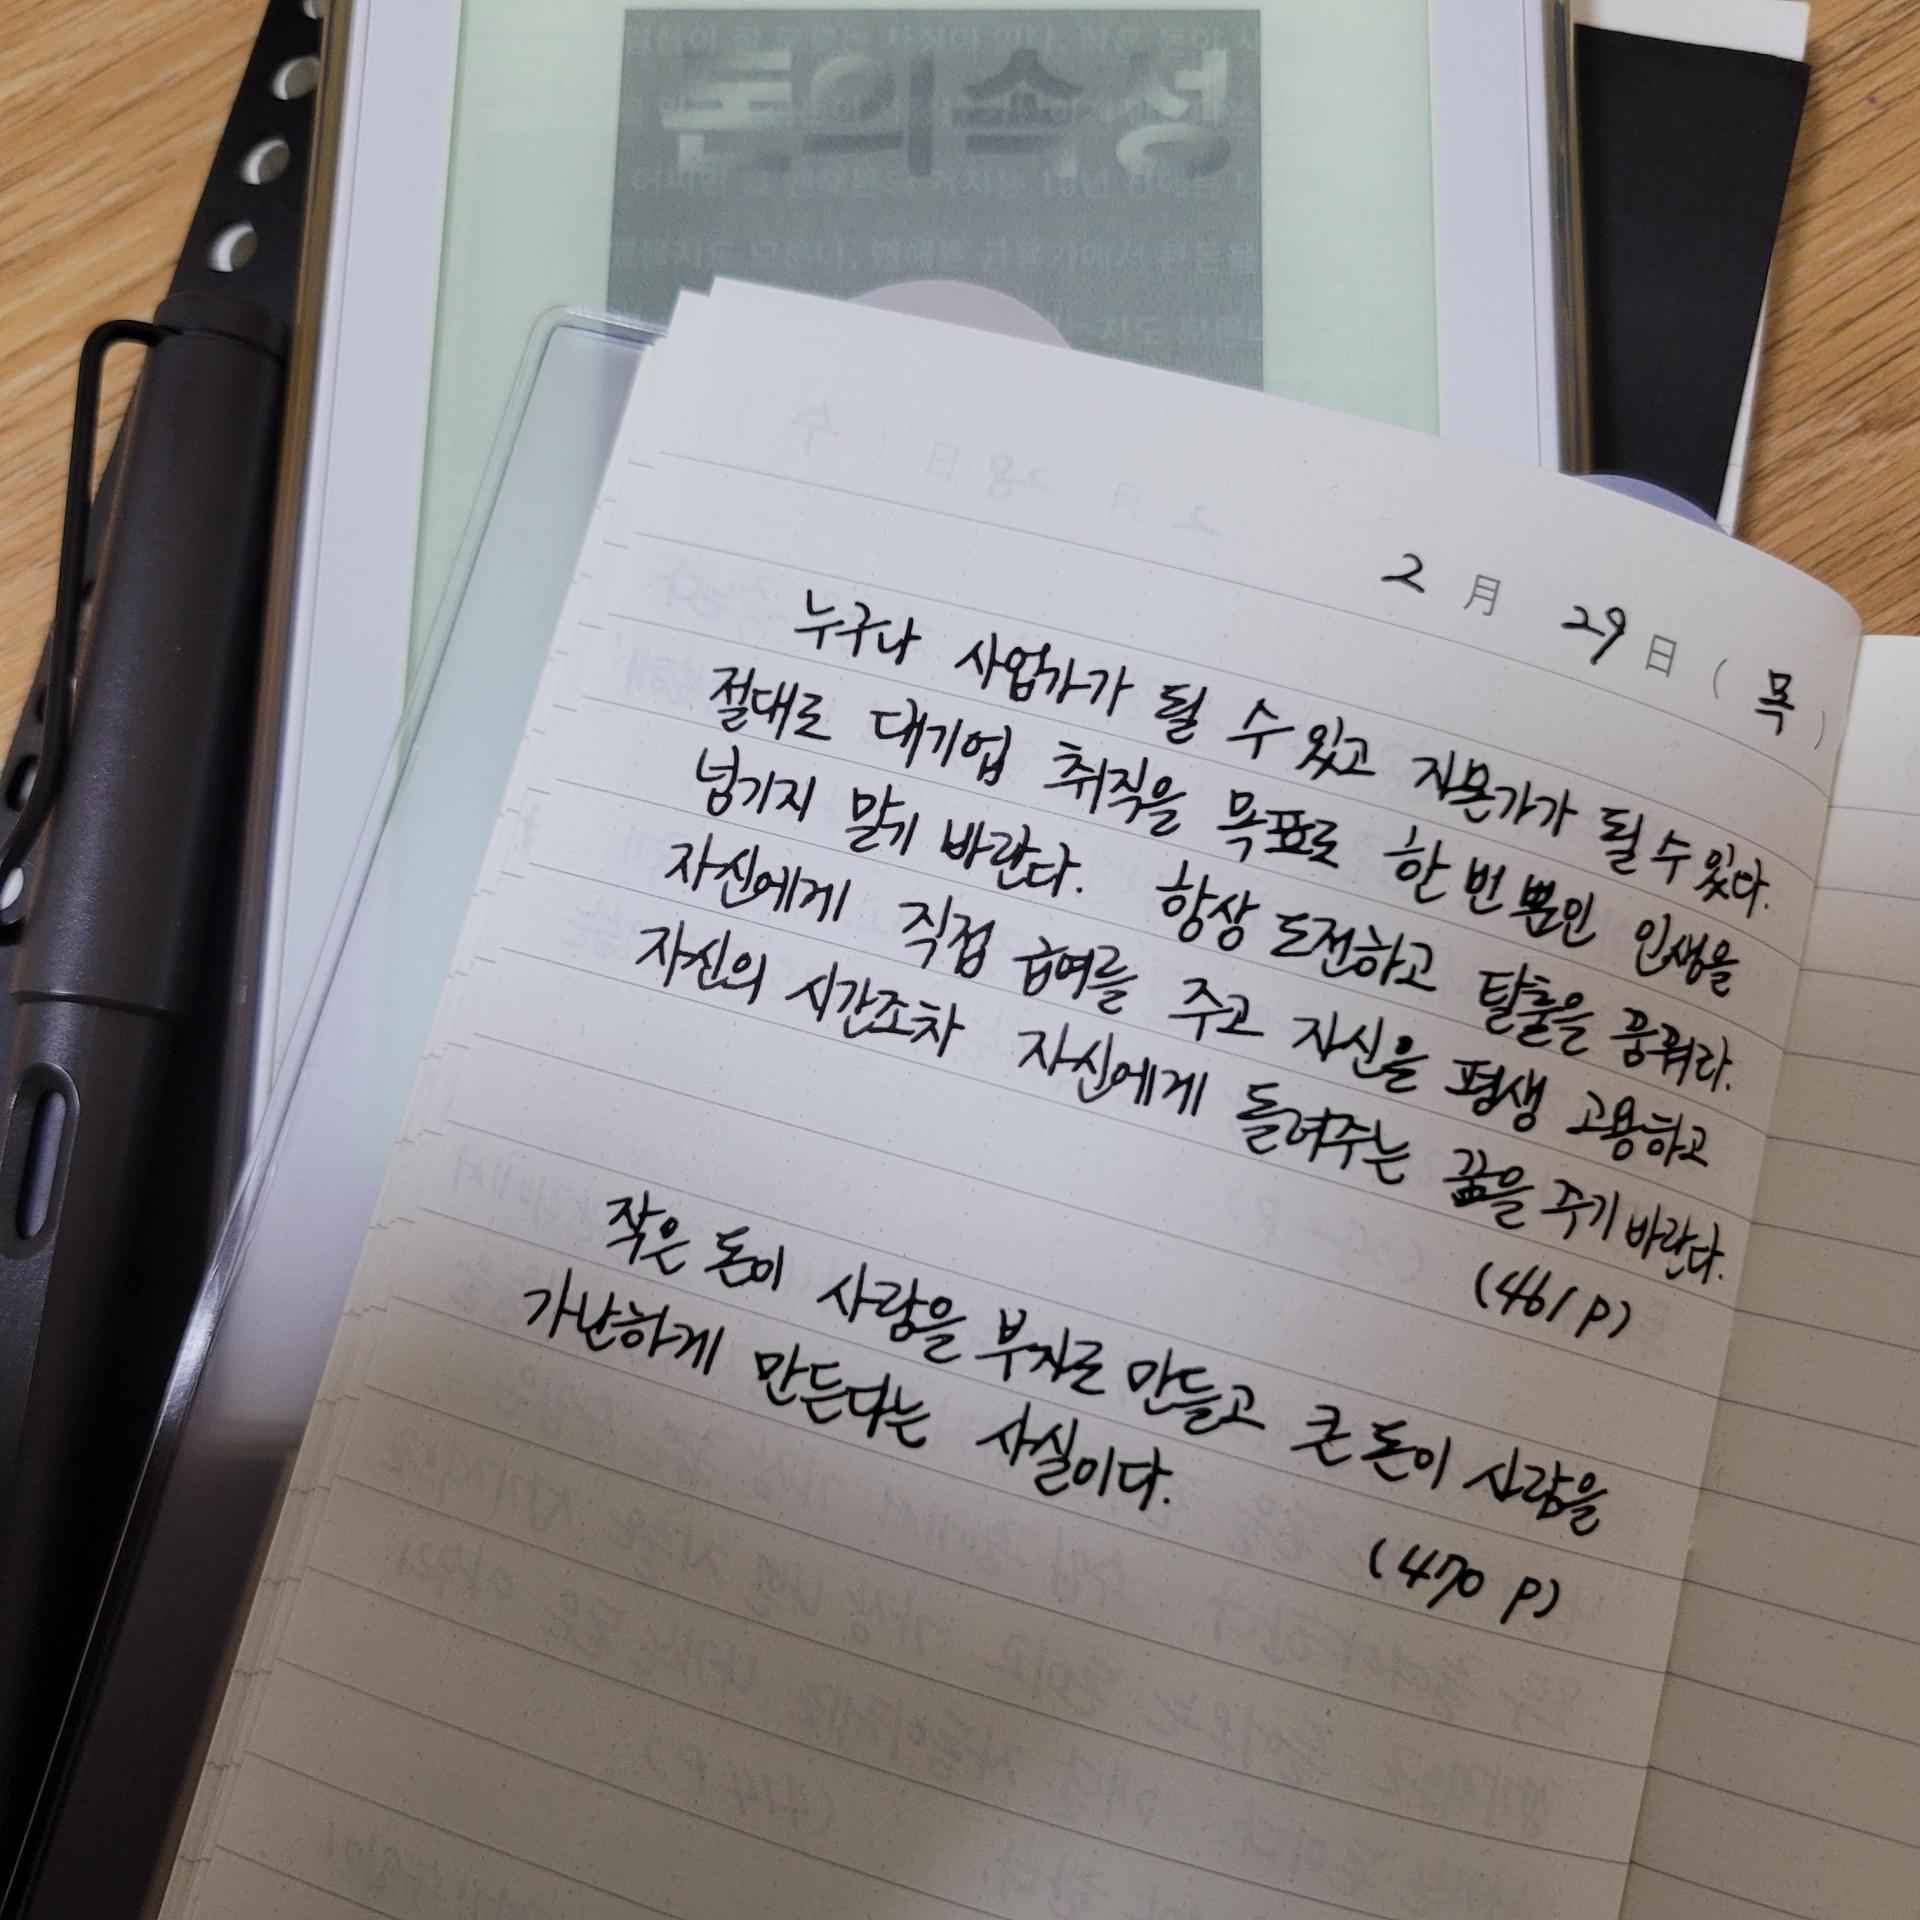 돈의속성
2月 29日(목)
누구나 사업가가 될 수 있고 자본가가 될 수 있다.
절대로 대기업 취직을 목표로 한 번 뿐인 인생을
넘기지 말기 바란다. 항상 도전하고 탈출을 꿈꿔라.
자신에게 직접 급여를 주고 자신을 평생 고용하고
자신의 시간조차 자신에게 돌려주는 꿈을 주기 바란다.
(461 P)
작은 돈이 사람을 부자로 만들고 큰 돈이 사람을
가난하게 만든다는 사실이다.
(470 P)